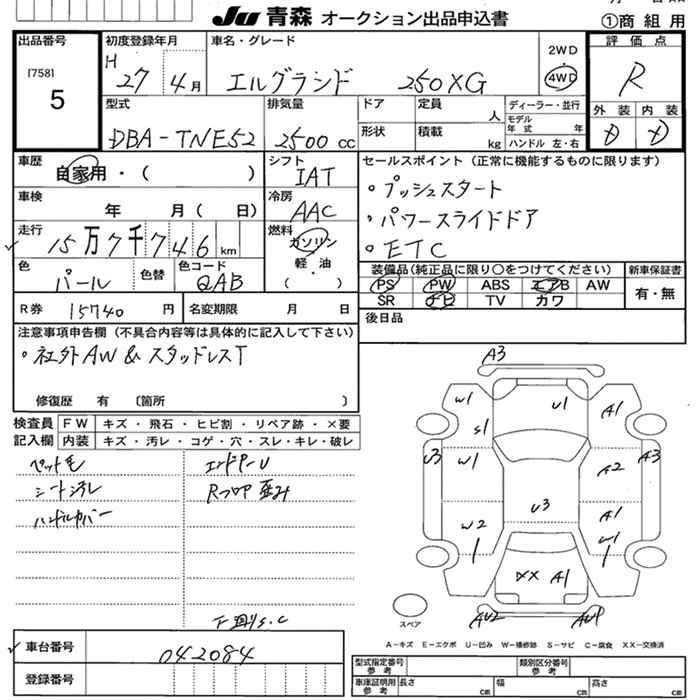 Ju 青森 オークション出品申込書
①商 組 用
出品番号
[758]
5
初度登録年月
H
27 4 月
車名・グレード
エルグランド 250XG
2WD
4WD
評 価 点
R
外 装 内 装
D D
型式
DBA-TNE52
排気量
2500 cc
ドア
定員
人
ディーラー・並行
モデル
年 式 年
形状
積載
kg
ハンドル 左・右
車歴
自家用・( )
シフト
IAT
車検
年 月( 日)
冷房
AAC
走行
15万7千746 km
燃料
ガソリン
軽・油
( )
色
パール
色替
色コード
QAB
セールスポイント(正常に機能するものに限ります)
・プッシュスタート
・パワースライドドア
・ETC
装備品(純正品に限り○をつけてください)
新車保証書
PS PW ABS エアB AW
SR ナビ TV カワ
有・無
R券 15740 円
名変期限 月 日
後日品
注意事項申告欄(不具合内容等は具体的に記入して下さい)
・社外AW & スタッドレスT
修復歴 有 〔箇所 〕
検査員
記入欄
FW キズ・飛石・ヒビ割・リペア跡・×要
内装 キズ・汚レ・コゲ・穴・スレ・キレ・破レ
ペット毛
シート汚レ
ハンドルカバー
Rフロア歪み
下廻りS.C
A3
W1
U1
A1
S1
U3
W1
A2
A3
U3
W2
A1
W1
XX
A1
AU2
AU1
スペア
A−キズ E−エクボ U−凹み W−補修跡 S−サビ C−腐食 XX−交換済
車台番号
042084
登録番号
型式指定番号
参 考
類別区分番号
参 考
車庫証明用
参 考
長さ
cm
幅
cm
高さ
cm